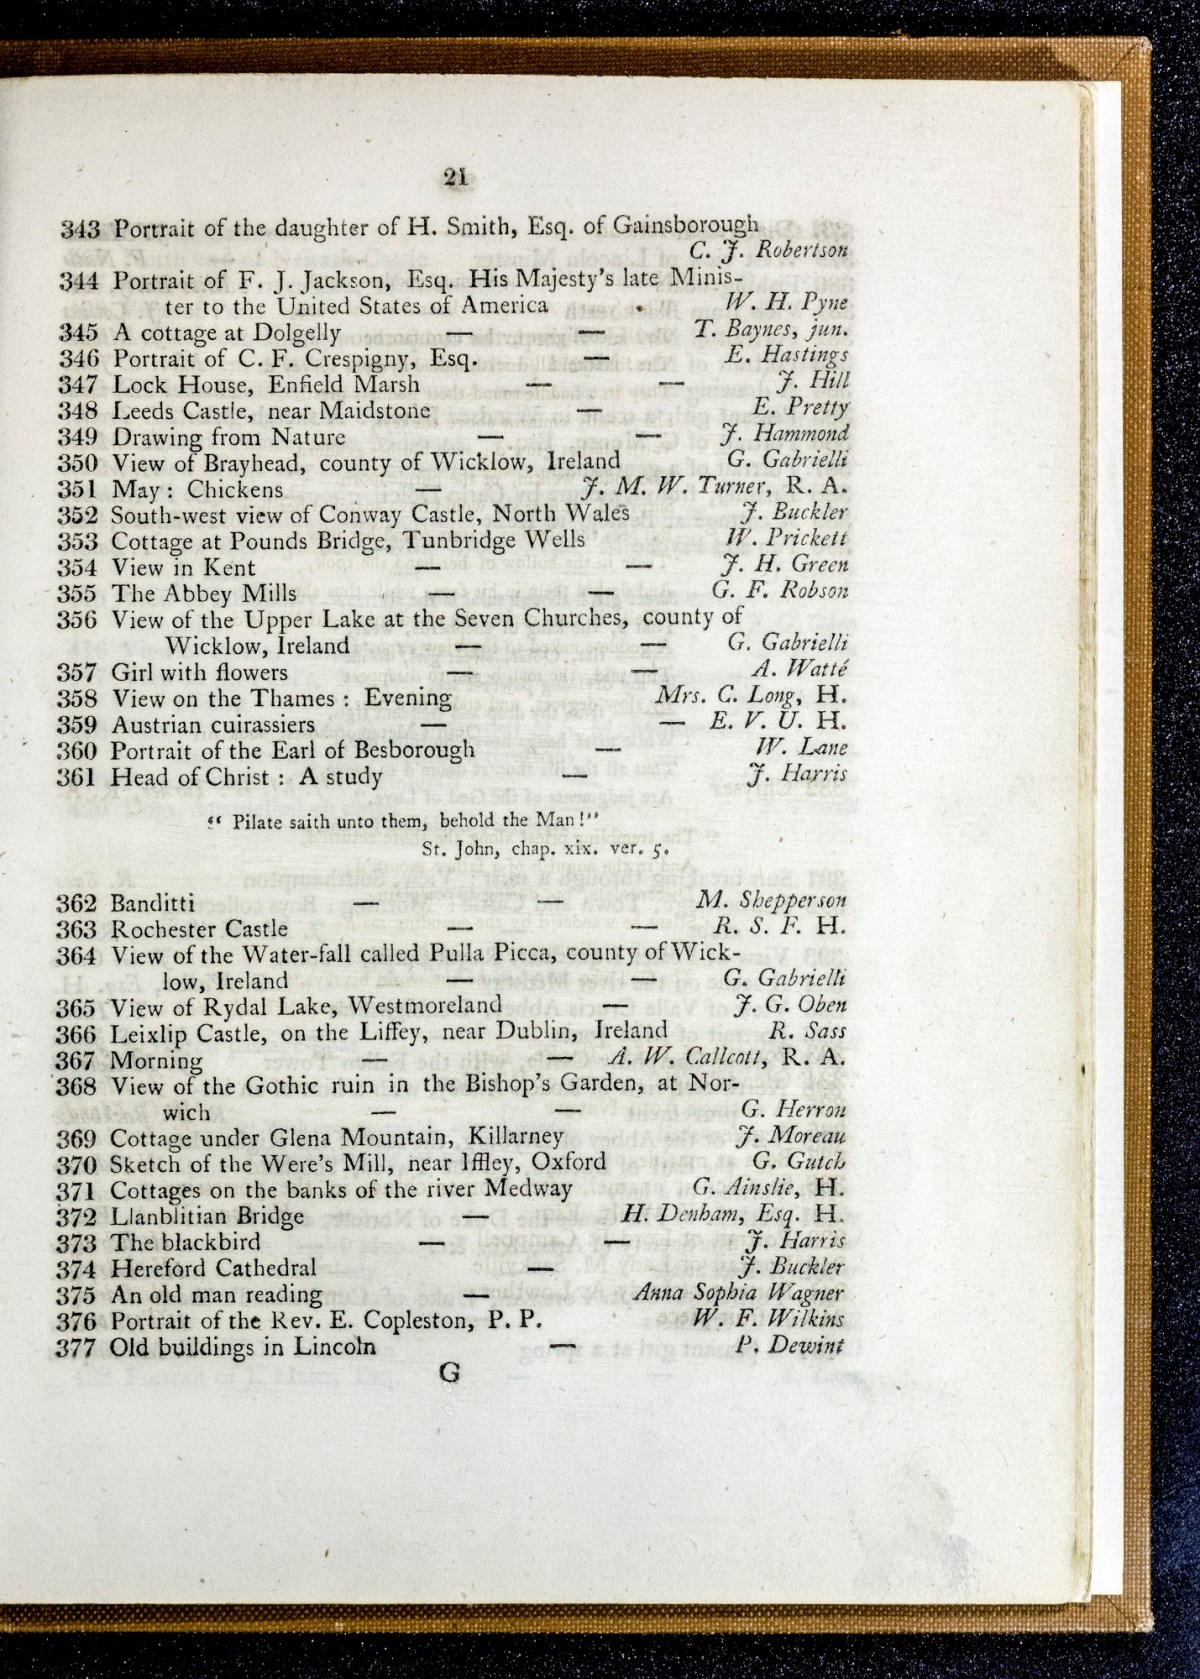 21
343 Portrait of the daughter of H. Smith, Esq. of Gainsborough
C. J. Robertson
344 Portrait of F. J. Jackson, Esq. His Majesty's late Minis-
ter to the United States of America W. H. Pyne
345 A cottage at Dolgelly — — T. Baynes, jun.
346 Portrait of C. F. Crespigny, Esq. — E. Hastings
347 Lock House, Enfield Marsh — — J. Hill
348 Leeds Castle, near Maidstone — E. Pretty
349 Drawing from Nature — — J. Hammond
350 View of Brayhead, county of Wicklow, Ireland G. Gabrielli
351 May : Chickens — J. M. W. Turner, R. A.
352 South-west view of Conway Castle, North Wales J. Buckler
353 Cottage at Pounds Bridge, Tunbridge Wells W. Prickett
354 View in Kent — — J. H. Green
355 The Abbey Mills — — G. F. Robson
356 View of the Upper Lake at the Seven Churches, county of
Wicklow, Ireland — — G. Gabrielli
357 Girl with flowers — — A. Watté
358 View on the Thames : Evening Mrs. C. Long, H.
359 Austrian cuirassiers — — E. V. U. H.
360 Portrait of the Earl of Besborough — W. Lane
361 Head of Christ : A study — J. Harris
“ Pilate saith unto them, behold the Man !”
St. John, chap. xix. ver. 5.
362 Banditti — — M. Shepperson
363 Rochester Castle — — R. S. F. H.
364 View of the Water-fall called Pulla Picca, county of Wick-
low, Ireland — — G. Gabrielli
365 View of Rydal Lake, Westmoreland — J. G. Oben
366 Leixlip Castle, on the Liffey, near Dublin, Ireland R. Sass
367 Morning — — A. W. Callcott, R. A.
368 View of the Gothic ruin in the Bishop's Garden, at Nor-
wich — — G. Herron
369 Cottage under Glena Mountain, Killarney J. Moreau
370 Sketch of the Were's Mill, near Iffley, Oxford G. Gutch
371 Cottages on the banks of the river Medway G. Ainslie, H.
372 Llanblitian Bridge — H. Denham, Esq. H.
373 The blackbird — — J. Harris
374 Hereford Cathedral — J. Buckler
375 An old man reading — Anna Sophia Wagner
376 Portrait of the Rev. E. Copleston, P. P. W. F. Wilkins
377 Old buildings in Lincoln — P. Dewint
G